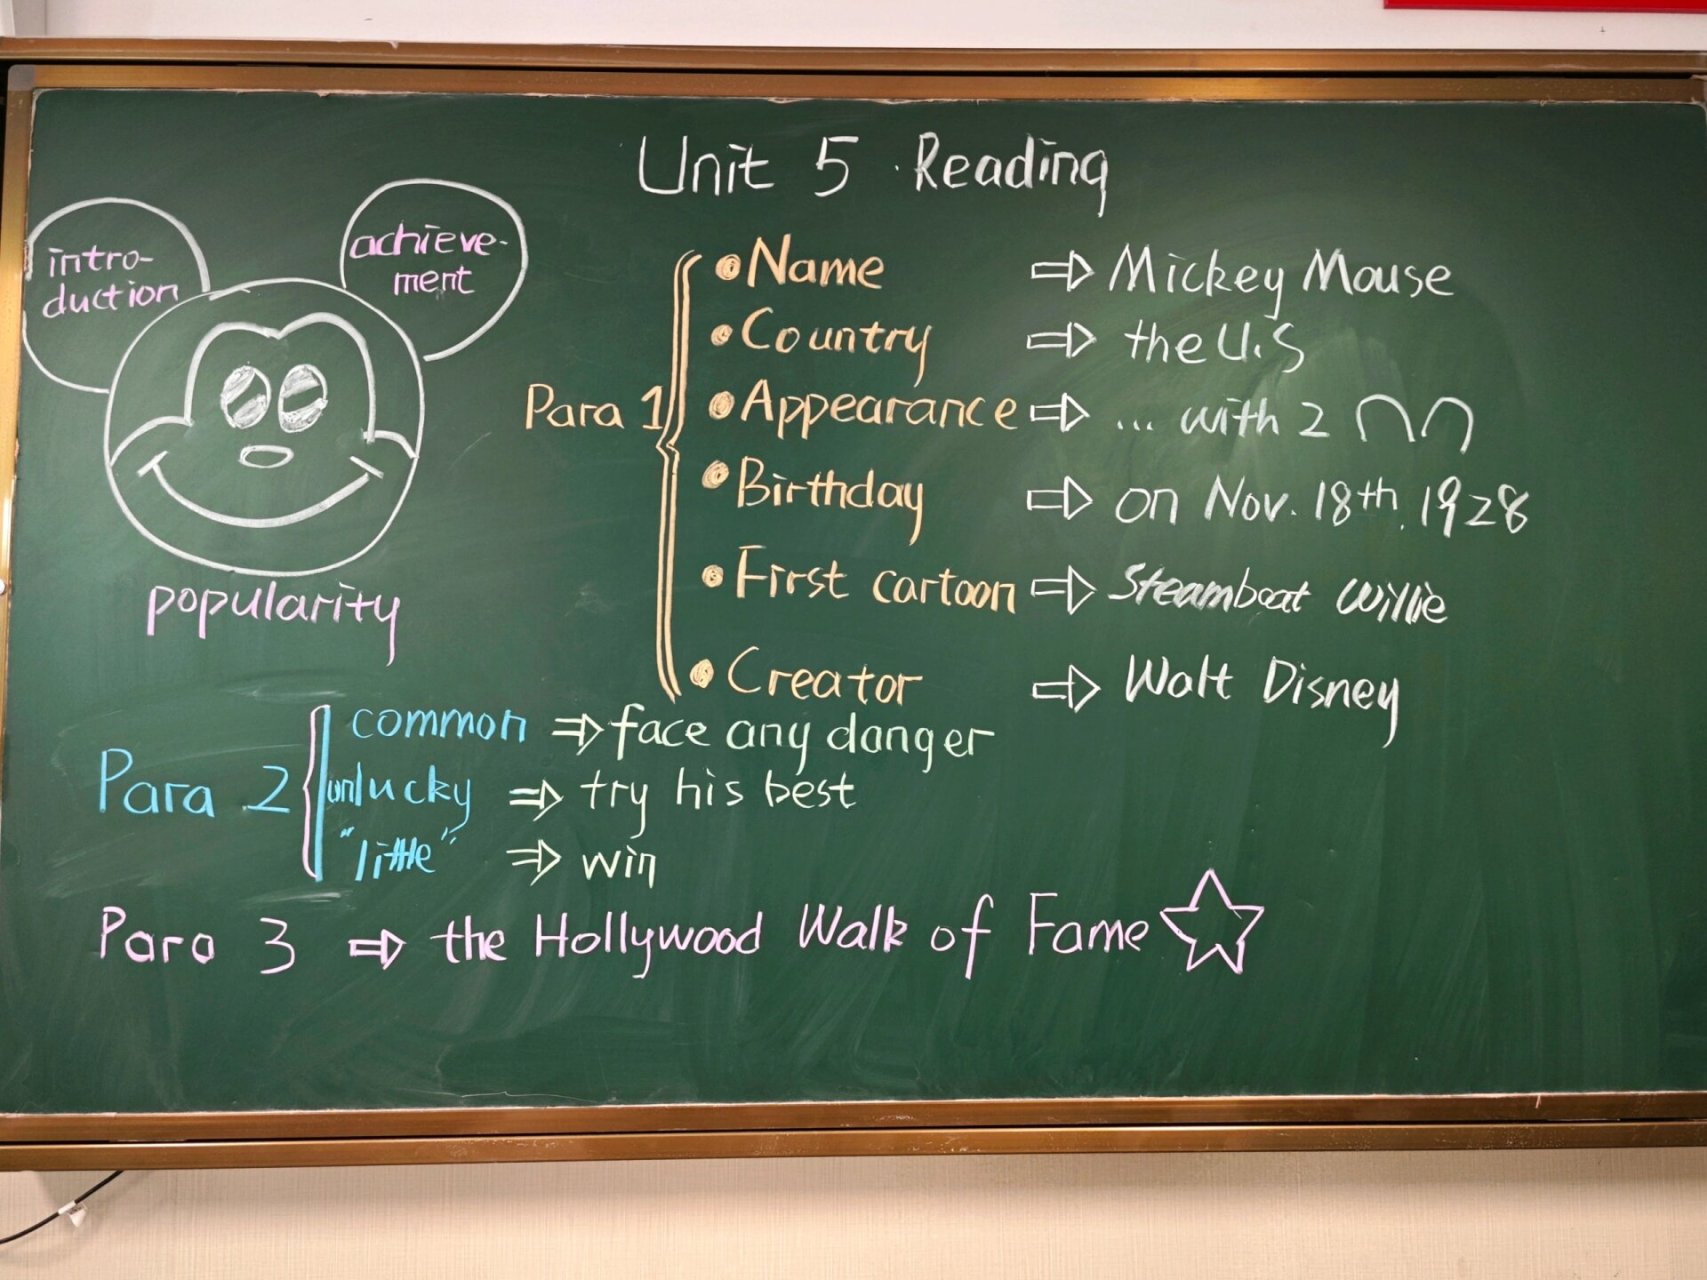 Unit 5 Reading
intro-
duction
achieve-
ment
popularity
Para 1
Name ⇒ Mickey Mouse
Country ⇒ the U.S
Appearance ⇒ ... with 2
Birthday ⇒ on Nov. 18th, 1928
First cartoon ⇒ Steamboat Willie
Creator ⇒ Walt Disney
Para 2
common ⇒ face any danger
unlucky ⇒ try his best
"little" ⇒ win
Para 3 ⇒ the Hollywood Walk of Fame